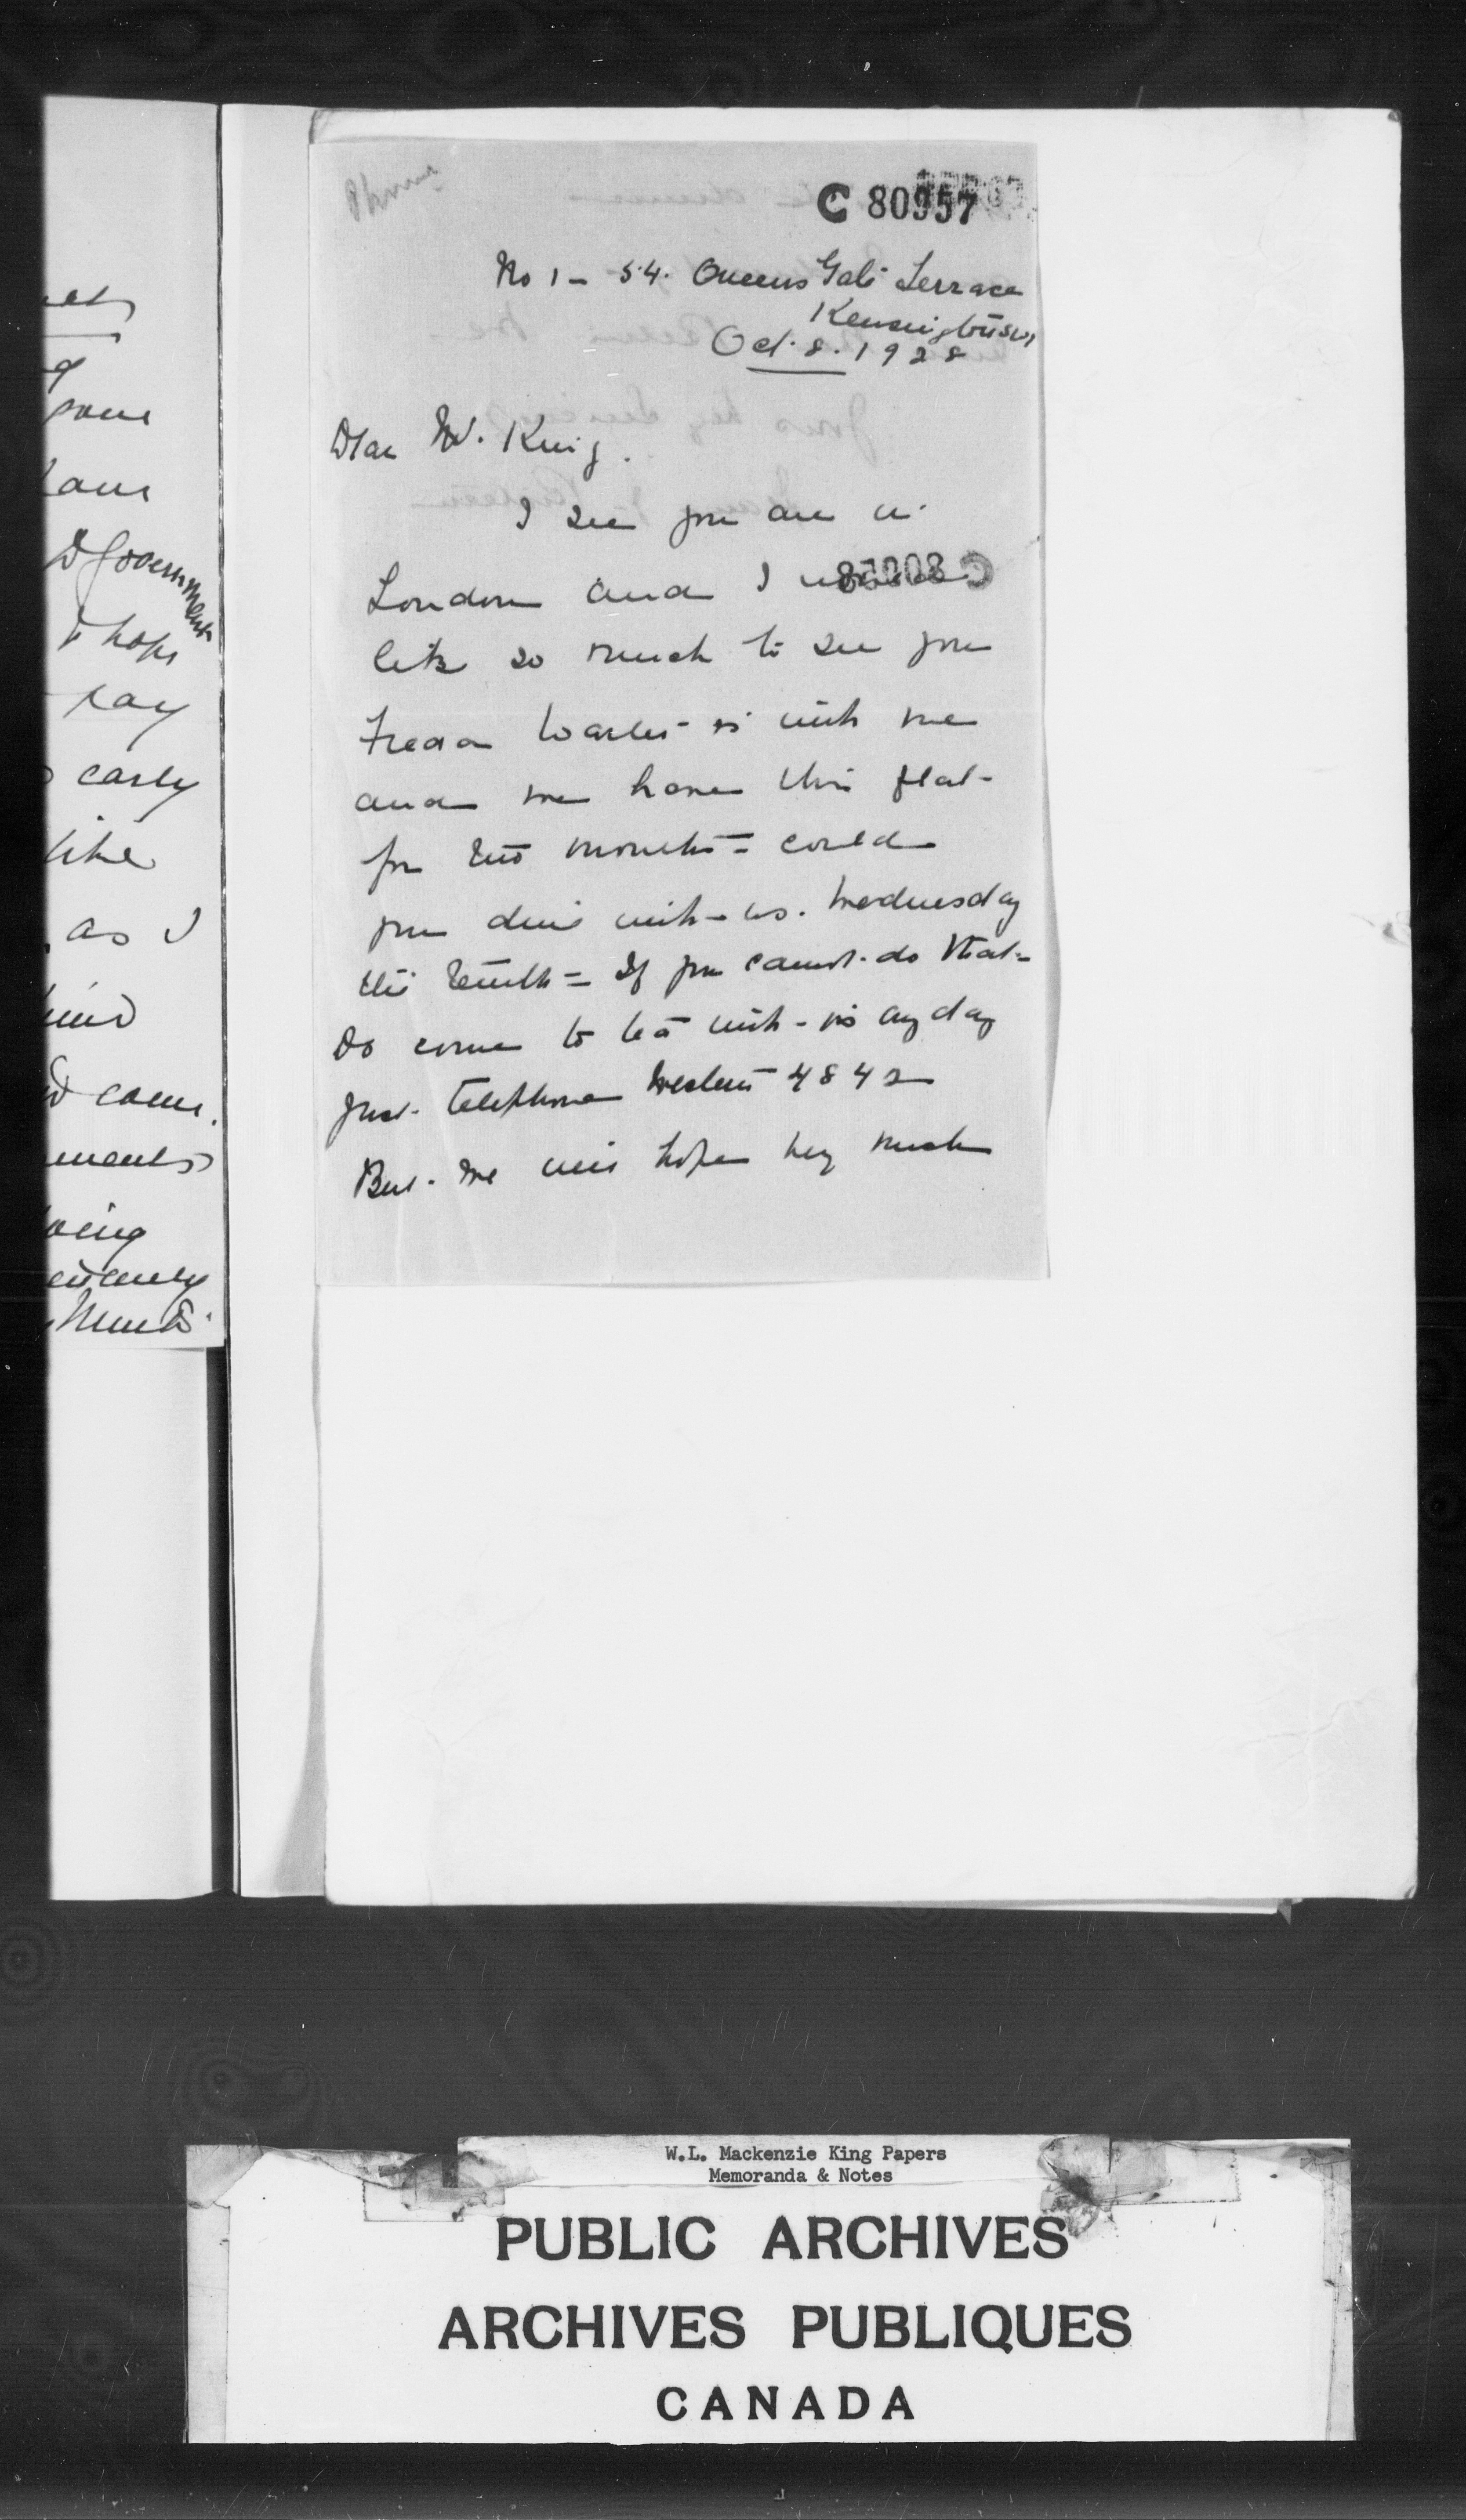 et
g
some
have
D Government
& hope
say
early
like
as I
kind
come.
ments
oing
Phone
C 80957
No 1 - 54. Queens Gate Terrace
Kensington SW
Oct. 8. 1928
Dear Mr. King.
I see you are in
London and I would
C 80958
like so much to see you
Freda is with me
and we have this flat-
for two months = could
you dine with us. Wednesday
the tenth = If you cannot do that-
Do come to tea with us any day
Just telephone Western 4842
But we will hope very much
W.L. Mackenzie King Papers
Memoranda & Notes
PUBLIC ARCHIVES
ARCHIVES PUBLIQUES
CANADA